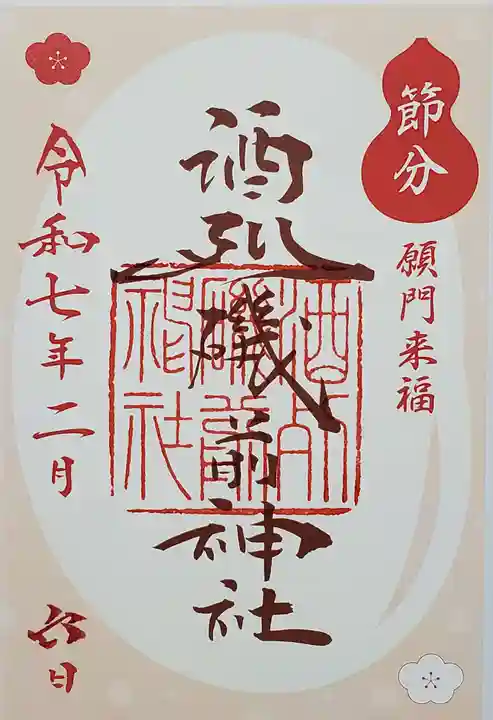 節分
願門来福
酒列磯前神社
酒列磯前神社
令和七年二月六日